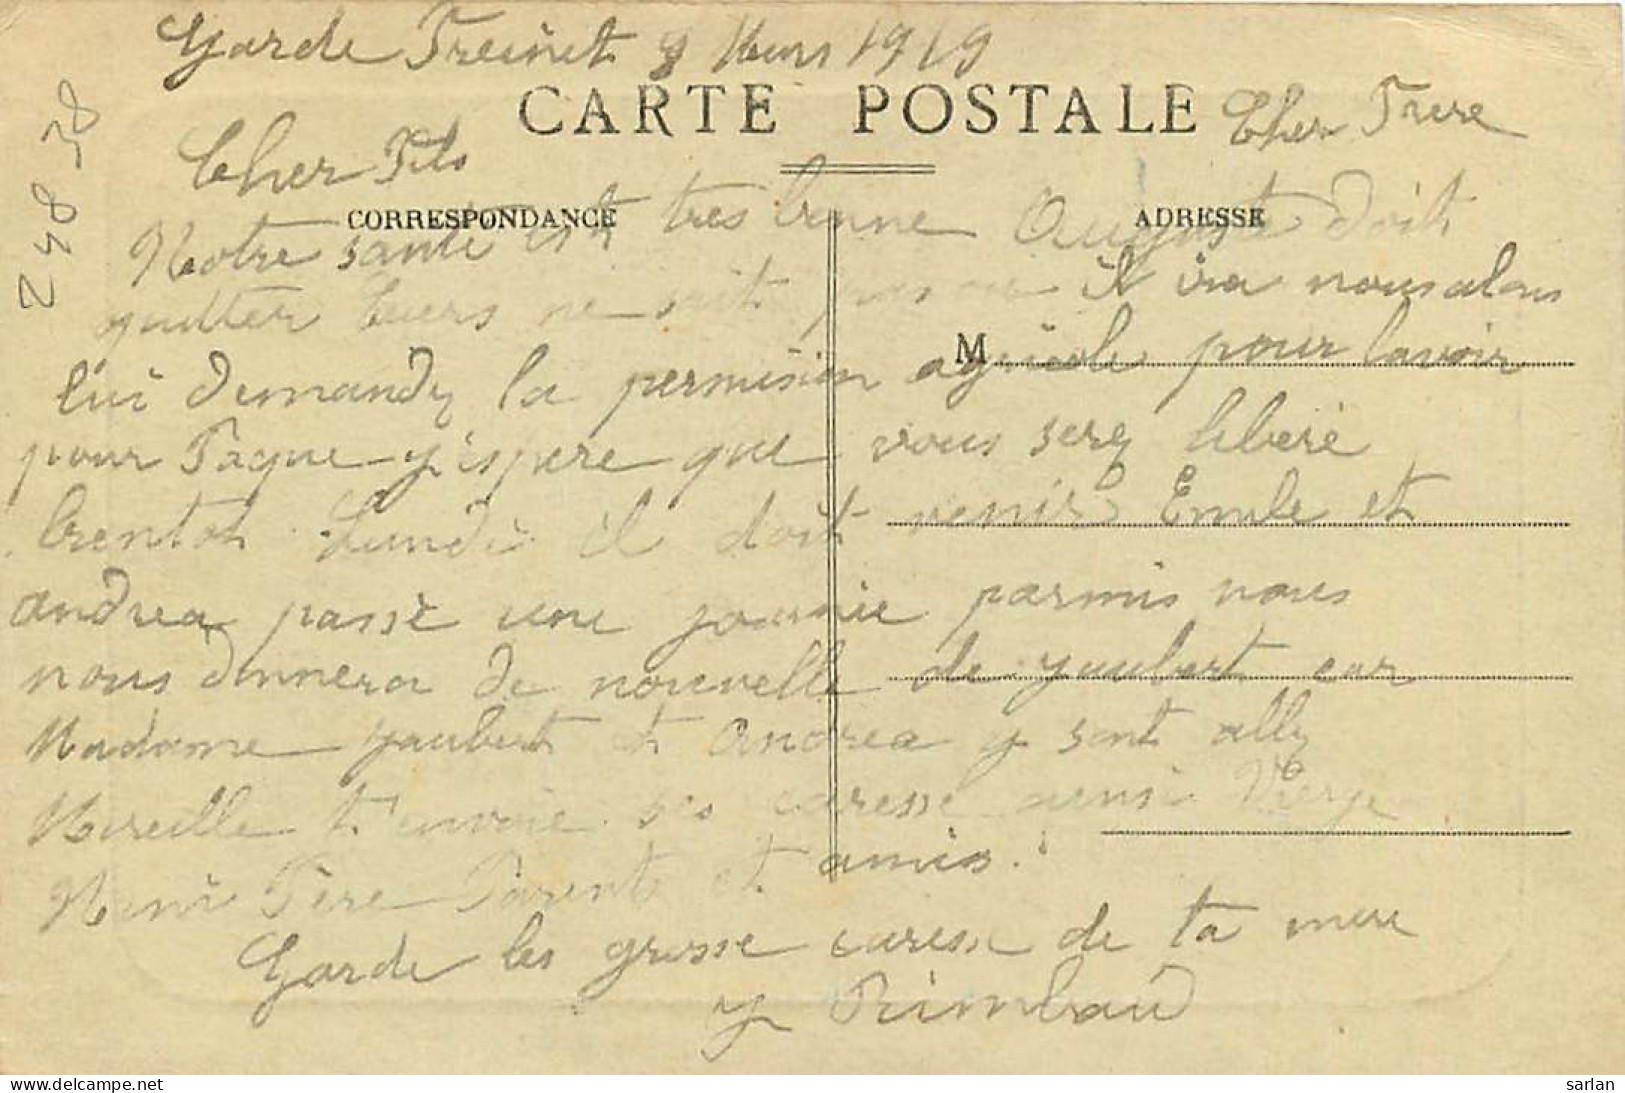 Garde Freinet 8 Mars 1919
CARTE POSTALE
Cher Fils
Cher Frere
CORRESPONDANCE
ADRESSE
Notre santé est tres bonne Auguste doit
quitter Cuers ne sait pas ou il ira nous alons
M
lui demandez la permision agricole pour lavoir
pour Paque j'espere que vous serez libéré
bientot Lundi il doit venir Emile et
andrea passé une journie parmis nous
nous donnera de nouvelle de Jaubert car
Madame Jaubert et Andrea y sont allz
Mireille t'envoie ses caresse ainsi
Mimi Pere Parents et amis.
Garde les grosse caresse de ta mere
Rimbaud
248_58
sarlan